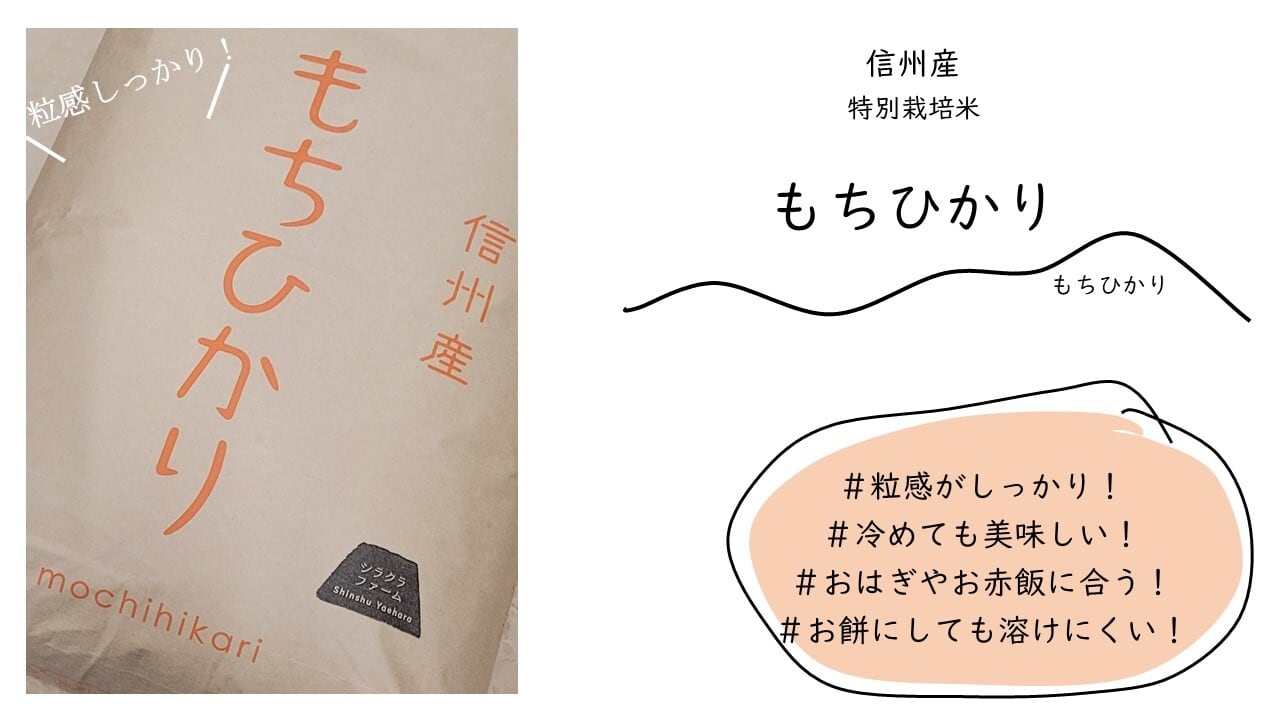 粒感しっかり！
もちひかり
信州産
mochihikari
シラクラ
ファーム
Shinshu Yaehara
信州産
特別栽培米
もちひかり
もちひかり
＃粒感がしっかり！
＃冷めても美味しい！
＃おはぎやお赤飯に合う！
＃お餅にしても溶けにくい！